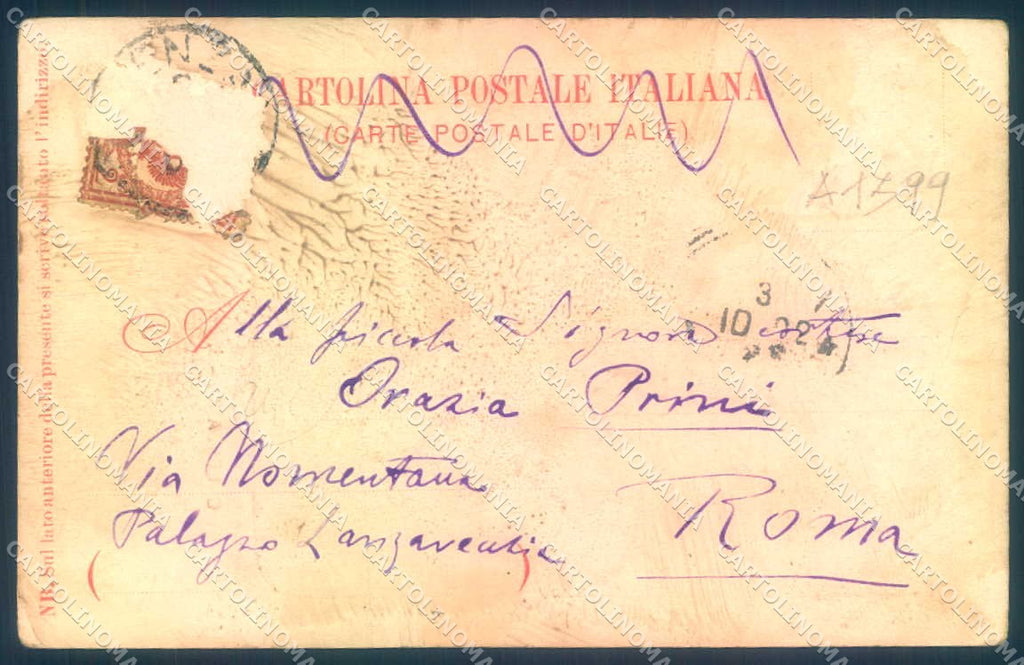 CARTOLINA POSTALE ITALIANA
(CARTE POSTALE D'ITALIE)
NB. Sul lato anteriore della presente si scrive soltanto l'indirizzo.
A1599
3
10
Alla piccola Signora
Orazia Prini
Via Nomentana
Palazzo
Roma
CARTOLINOMANIA